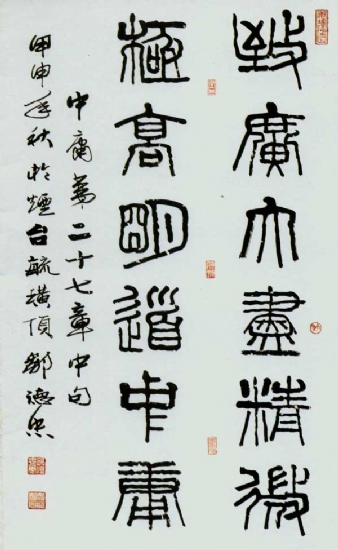 致廣大盡精微
極高明道中庸
中庸第二十七章中句
甲申年秋於煙台毓璜頂鄒德忠